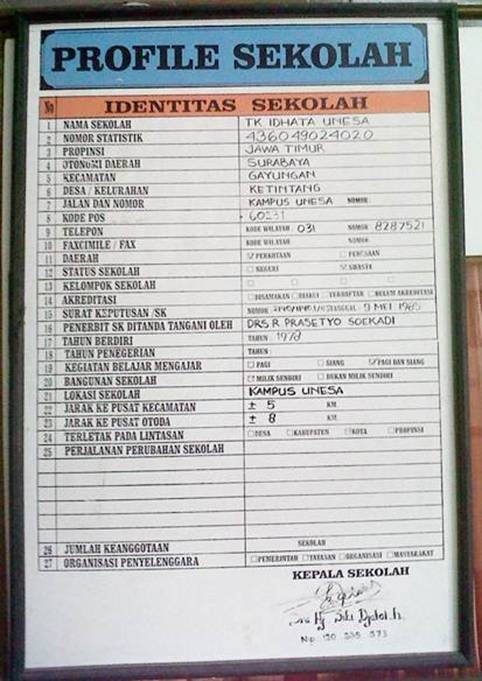 PROFILE SEKOLAH
No IDENTITAS SEKOLAH
1 NAMA SEKOLAH TK IDHATA UNESA
2 NOMOR STATISTIK 436049024020
3 PROPINSI JAWA TIMUR
4 OTONOMI DAERAH SURABAYA
5 KECAMATAN GAYUNGAN
6 DESA / KELURAHAN KETINTANG
7 JALAN DAN NOMOR KAMPUS UNESA NOMOR
8 KODE POS 60231
9 TELEPON KODE WILAYAH 031 NOMOR 8287521
10 FAXCIMILE / FAX KODE WILAYAH NOMOR
11 DAERAH ☑ PERKOTAAN ☐ PEDESAAN
12 STATUS SEKOLAH ☐ NEGERI ☑ SWASTA
13 KELOMPOK SEKOLAH ☐ ☐ ☐ ☐
14 AKREDITASI ☐ DISAMAKAN ☐ DIAKUI ☐ TERDAFTAR ☐ BELUM AKREDITASI
15 SURAT KEPUTUSAN / SK NOMOR 9 MEI 1985
16 PENERBIT SK DITANDA TANGANI OLEH DRS R. PRASETYO SOEKADI
17 TAHUN BERDIRI TAHUN 1978
18 TAHUN PENEGERIAN TAHUN
19 KEGIATAN BELAJAR MENGAJAR ☐ PAGI ☐ SIANG ☑ PAGI DAN SIANG
20 BANGUNAN SEKOLAH ☐ MILIK SENDIRI ☐ BUKAN MILIK SENDIRI
21 LOKASI SEKOLAH KAMPUS UNESA
22 JARAK KE PUSAT KECAMATAN ± 5 KM
23 JARAK KE PUSAT OTODA ± 8 KM
24 TERLETAK PADA LINTASAN ☐ DESA ☐ KABUPATEN ☐ KOTA ☐ PROPINSI
25 PERJALANAN PERUBAHAN SEKOLAH
26 JUMLAH KEANGGOTAAN SEKOLAH
27 ORGANISASI PENYELENGGARA ☐ PEMERINTAH ☐ YAYASAN ☐ ORGANISASI ☐ MASYARAKAT
KEPALA SEKOLAH
Dra Hj Siti
Nip. 130 535 373